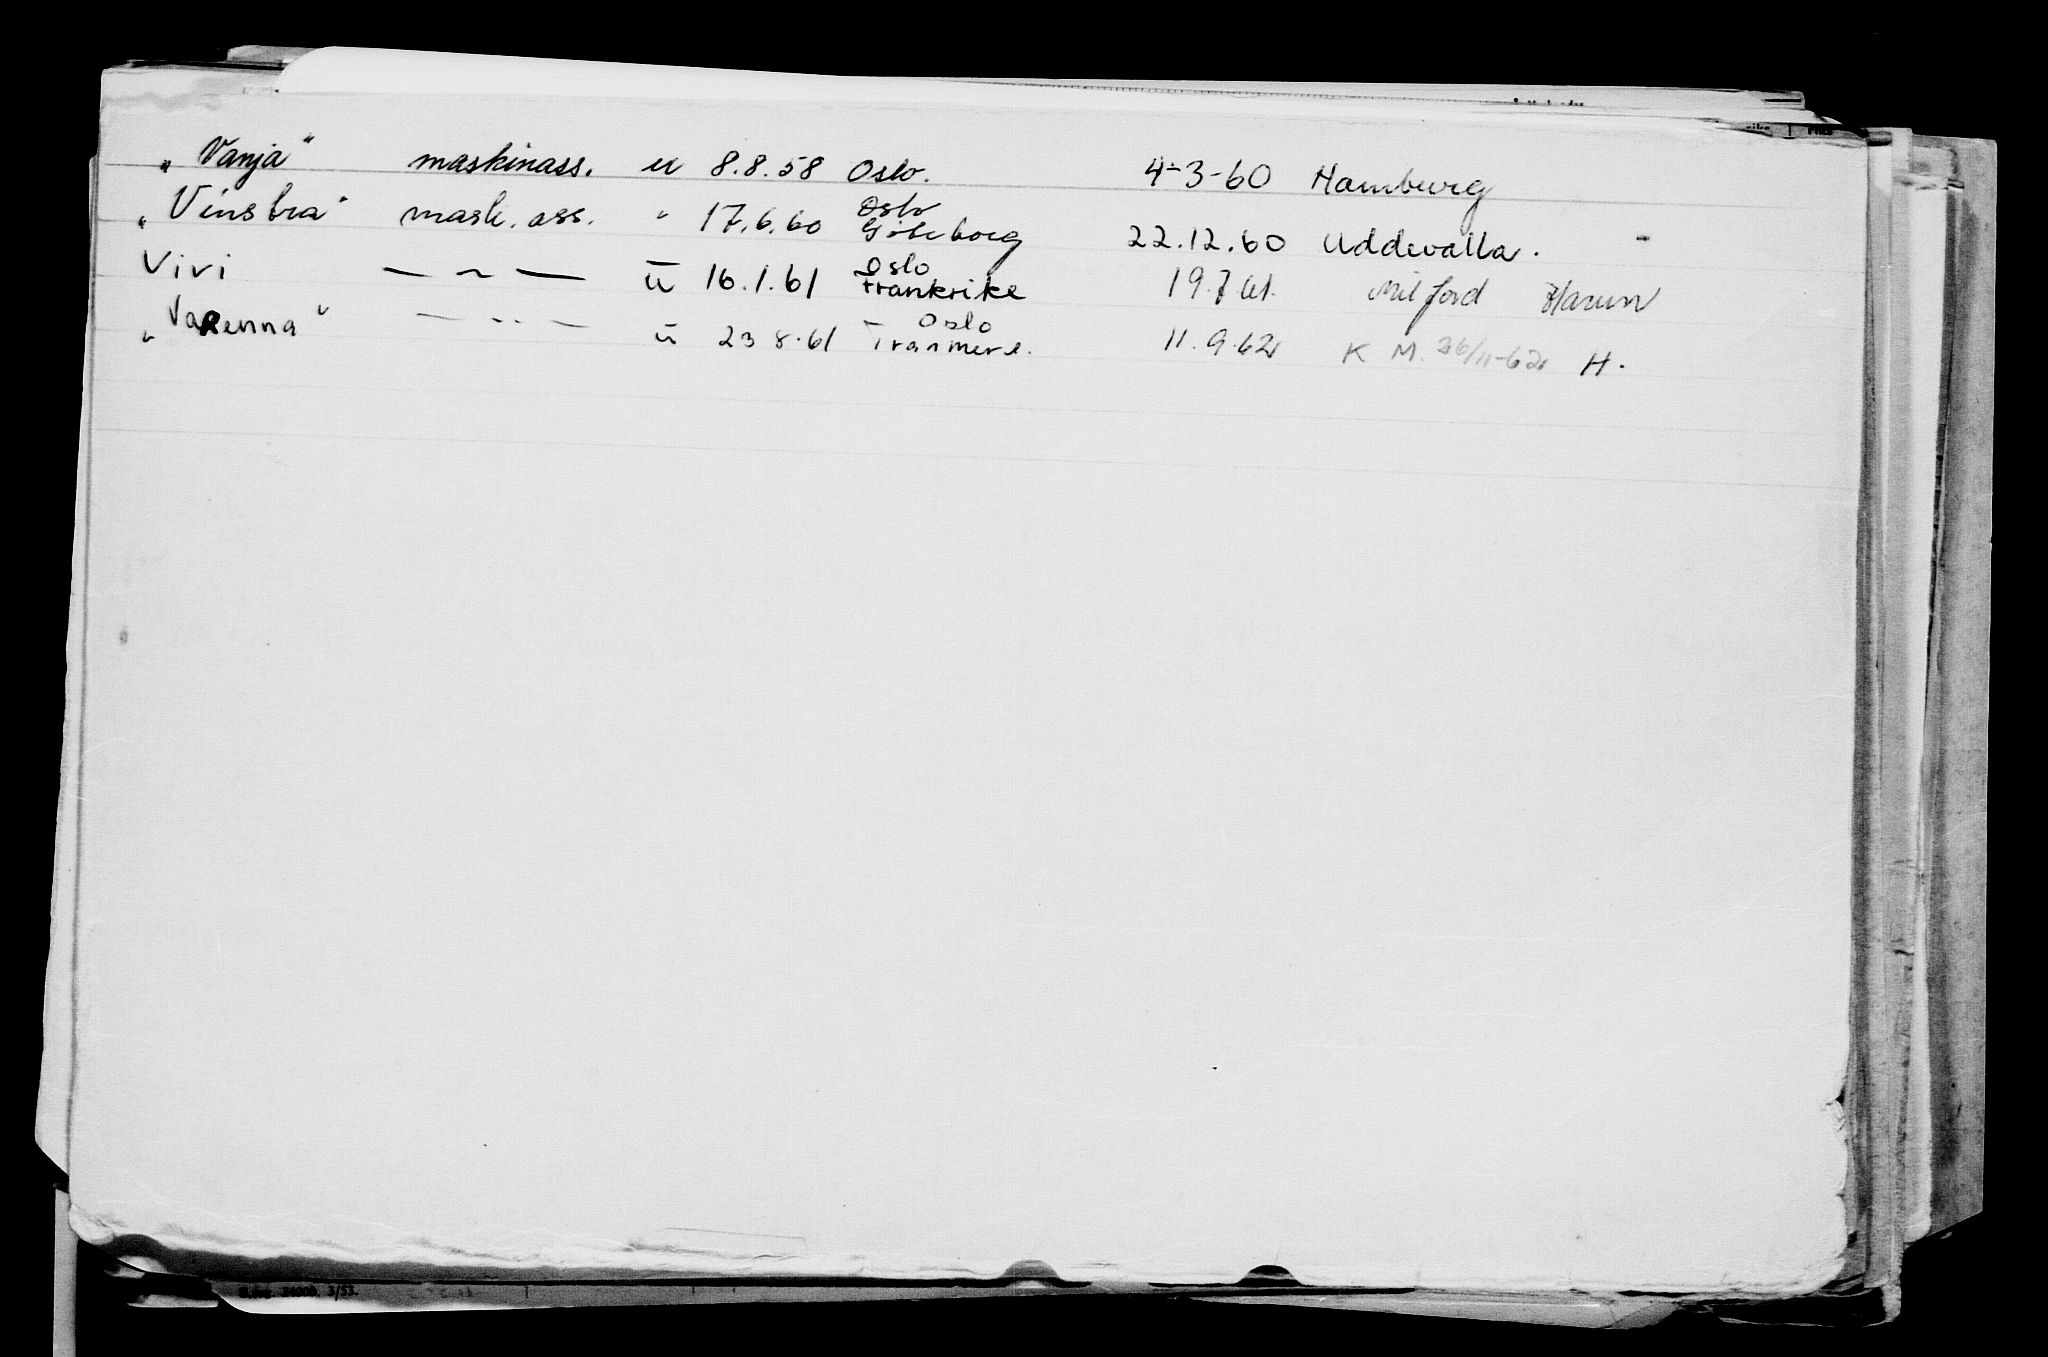 „Vanja" maskinass. u 8.8.58 Oslo. 4-3-60 Hamburg
„Vinstra" mask. ass. " 17.6.60 Oslo Göteborg 22.12.60 Uddevalla.
Vivi — ~ — u 16.1.61 Oslo Frankrike 19.7.61. Milford Haven
„Varenna" — .. — u 23.8.61 Oslo Tranmere. 11.9.62 K M. 26/11-62 H.
24000. 3/53.